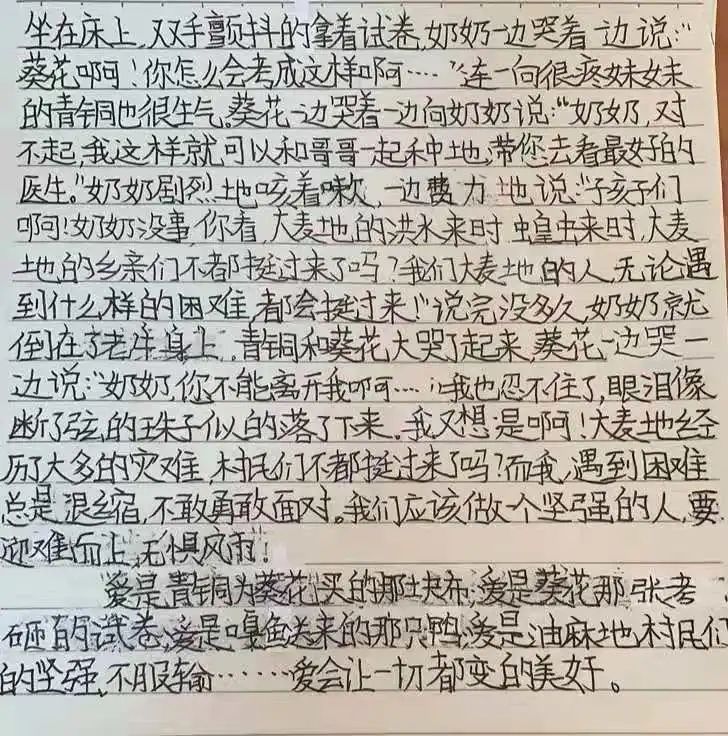 坐在床上,双手颤抖的拿着试卷,奶奶一边哭着一边说:“
葵花啊!你怎么会考成这样啊……”连一向很疼妹妹
的青铜也很生气。葵花一边哭着一边向奶奶说:“奶奶,对
不起,我这样就可以和哥哥一起种地,带您去看最好的
医生。”奶奶剧烈地咳着嗽,一边费力地说:“孩子们
啊!奶奶没事,你看,大麦地的洪水来时,蝗虫来时,大麦
地的乡亲们不都挺过来了吗?我们大麦地的人,无论遇
到什么样的困难,都会挺过来!”说完没多久,奶奶就
倒在了老牛身上,青铜和葵花大哭了起来,葵花一边哭一
边说:“奶奶,你不能离开我啊……”我也忍不住了,眼泪像
断了弦的珠子似的落了下来。我又想:是啊!大麦地经
历了大多的灾难,村民们不都挺过来了吗?而我,遇到困难
总是退缩,不敢勇敢面对。我们应该做一个坚强的人,要
迎难而上,无惧风雨!
爱是青铜为葵花买的那块布,爱是葵花那张考
砸的试卷,爱是嘎鱼送来的那只鸭,爱是油麻地村民们
的坚强,不服输……爱会让一切都变的美好。